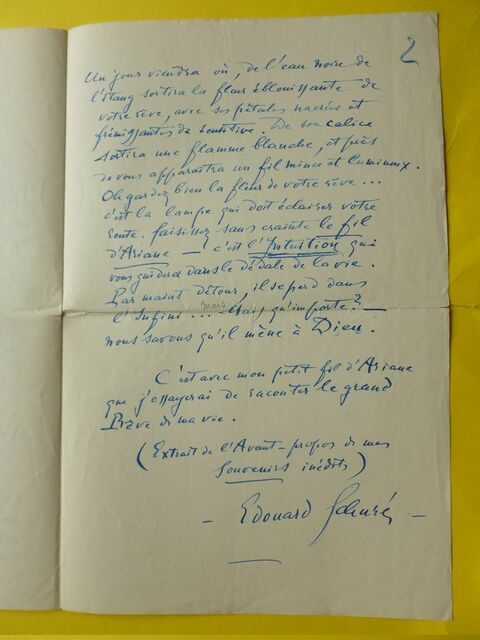 2
Un jour viendra où, de l'eau noire de
l'étang sortira la fleur éblouissante de
votre rêve, avec ses pétales nacrés et
frémissantes de sensitive. De son calice
sortira une flamme blanche, et près
de vous apparaîtra un fil mince et lumineux.
Oh gardez bien la fleur de votre rêve...
c'est la lampe qui doit éclairer votre
route. Saisissez sans crainte le fil
d'Ariane — c'est l'Intuition qui
vous guidera dans le dédale de la vie.
Par maint détour, il se perd dans
mais
l'Infini ... Mais qu'importe? —
nous savons qu'il mène à Dieu.
C'est avec mon petit fil d'Ariane
que j'essayerai de raconter le grand
Rêve de ma vie.
(Extrait de l'Avant-propos de mes
Souvenirs inédits)
— Edouard Schuré —